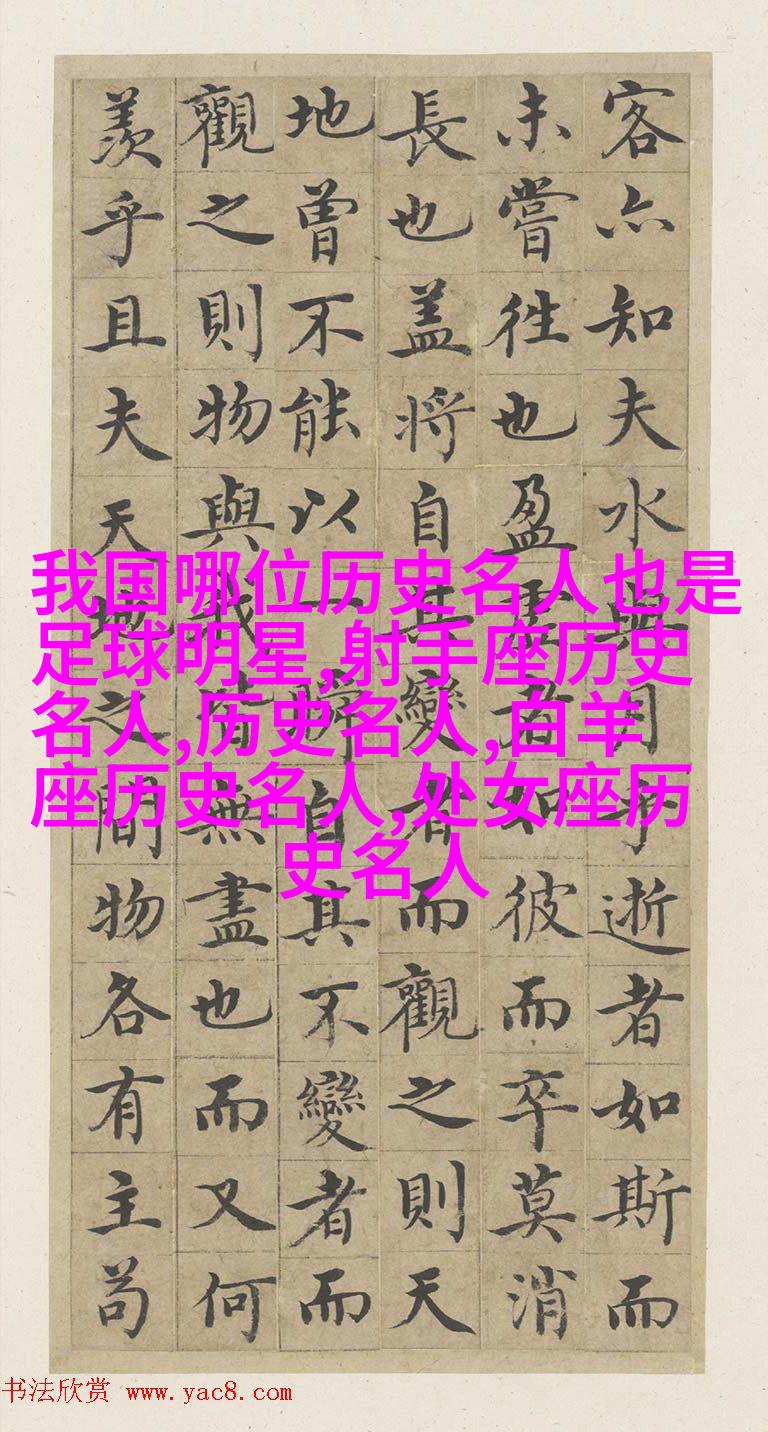 客亦知夫水與月乎逝者如斯而
未嘗往也盈虛者如彼而卒莫消
長也盖將自其變者而觀之則天
地曾不能以一瞬自其不變者而
觀之則物與我皆無盡也而又何
羨乎且夫天地之間物各有主苟
我国哪位历史名人也是
足球明星,射手座历史
名人,历史名人,白羊
座历史名人,处女座历
史名人
书法欣赏 www.yac8.com